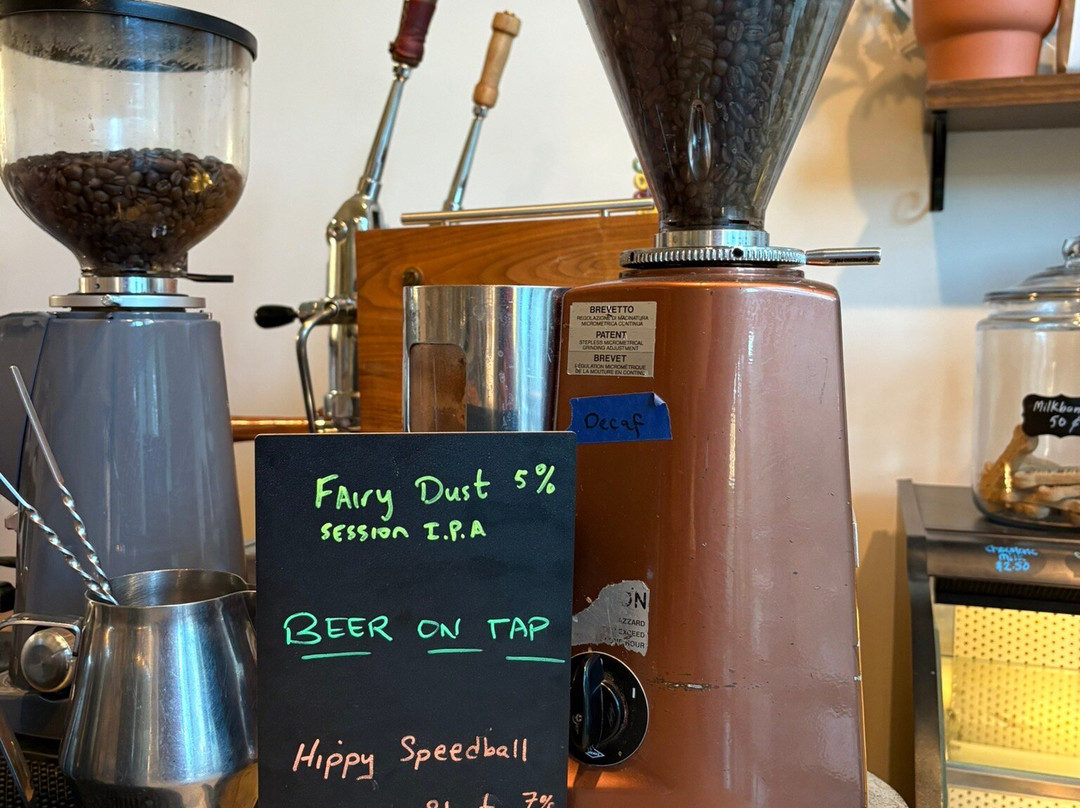 BREVETTO
REGOLAZIONE DI MACINATURA
MICROMETRICA CONTINUA
PATENT
STEPLESS MICROMETRICAL
GRINDING ADJUSTMENT
BREVET
REGULATION MICROMÉTRIQUE
DE LA MOUTURE EN CONTINU
Decaf
FAiry Dust 5%
SESSION I.P.A
BEER ON TAP
Hippy Speedball
7%
ON
ZZARD
EXCEED
HOUR
Milkbon
50¢
Chocolate
Milk
$2.50